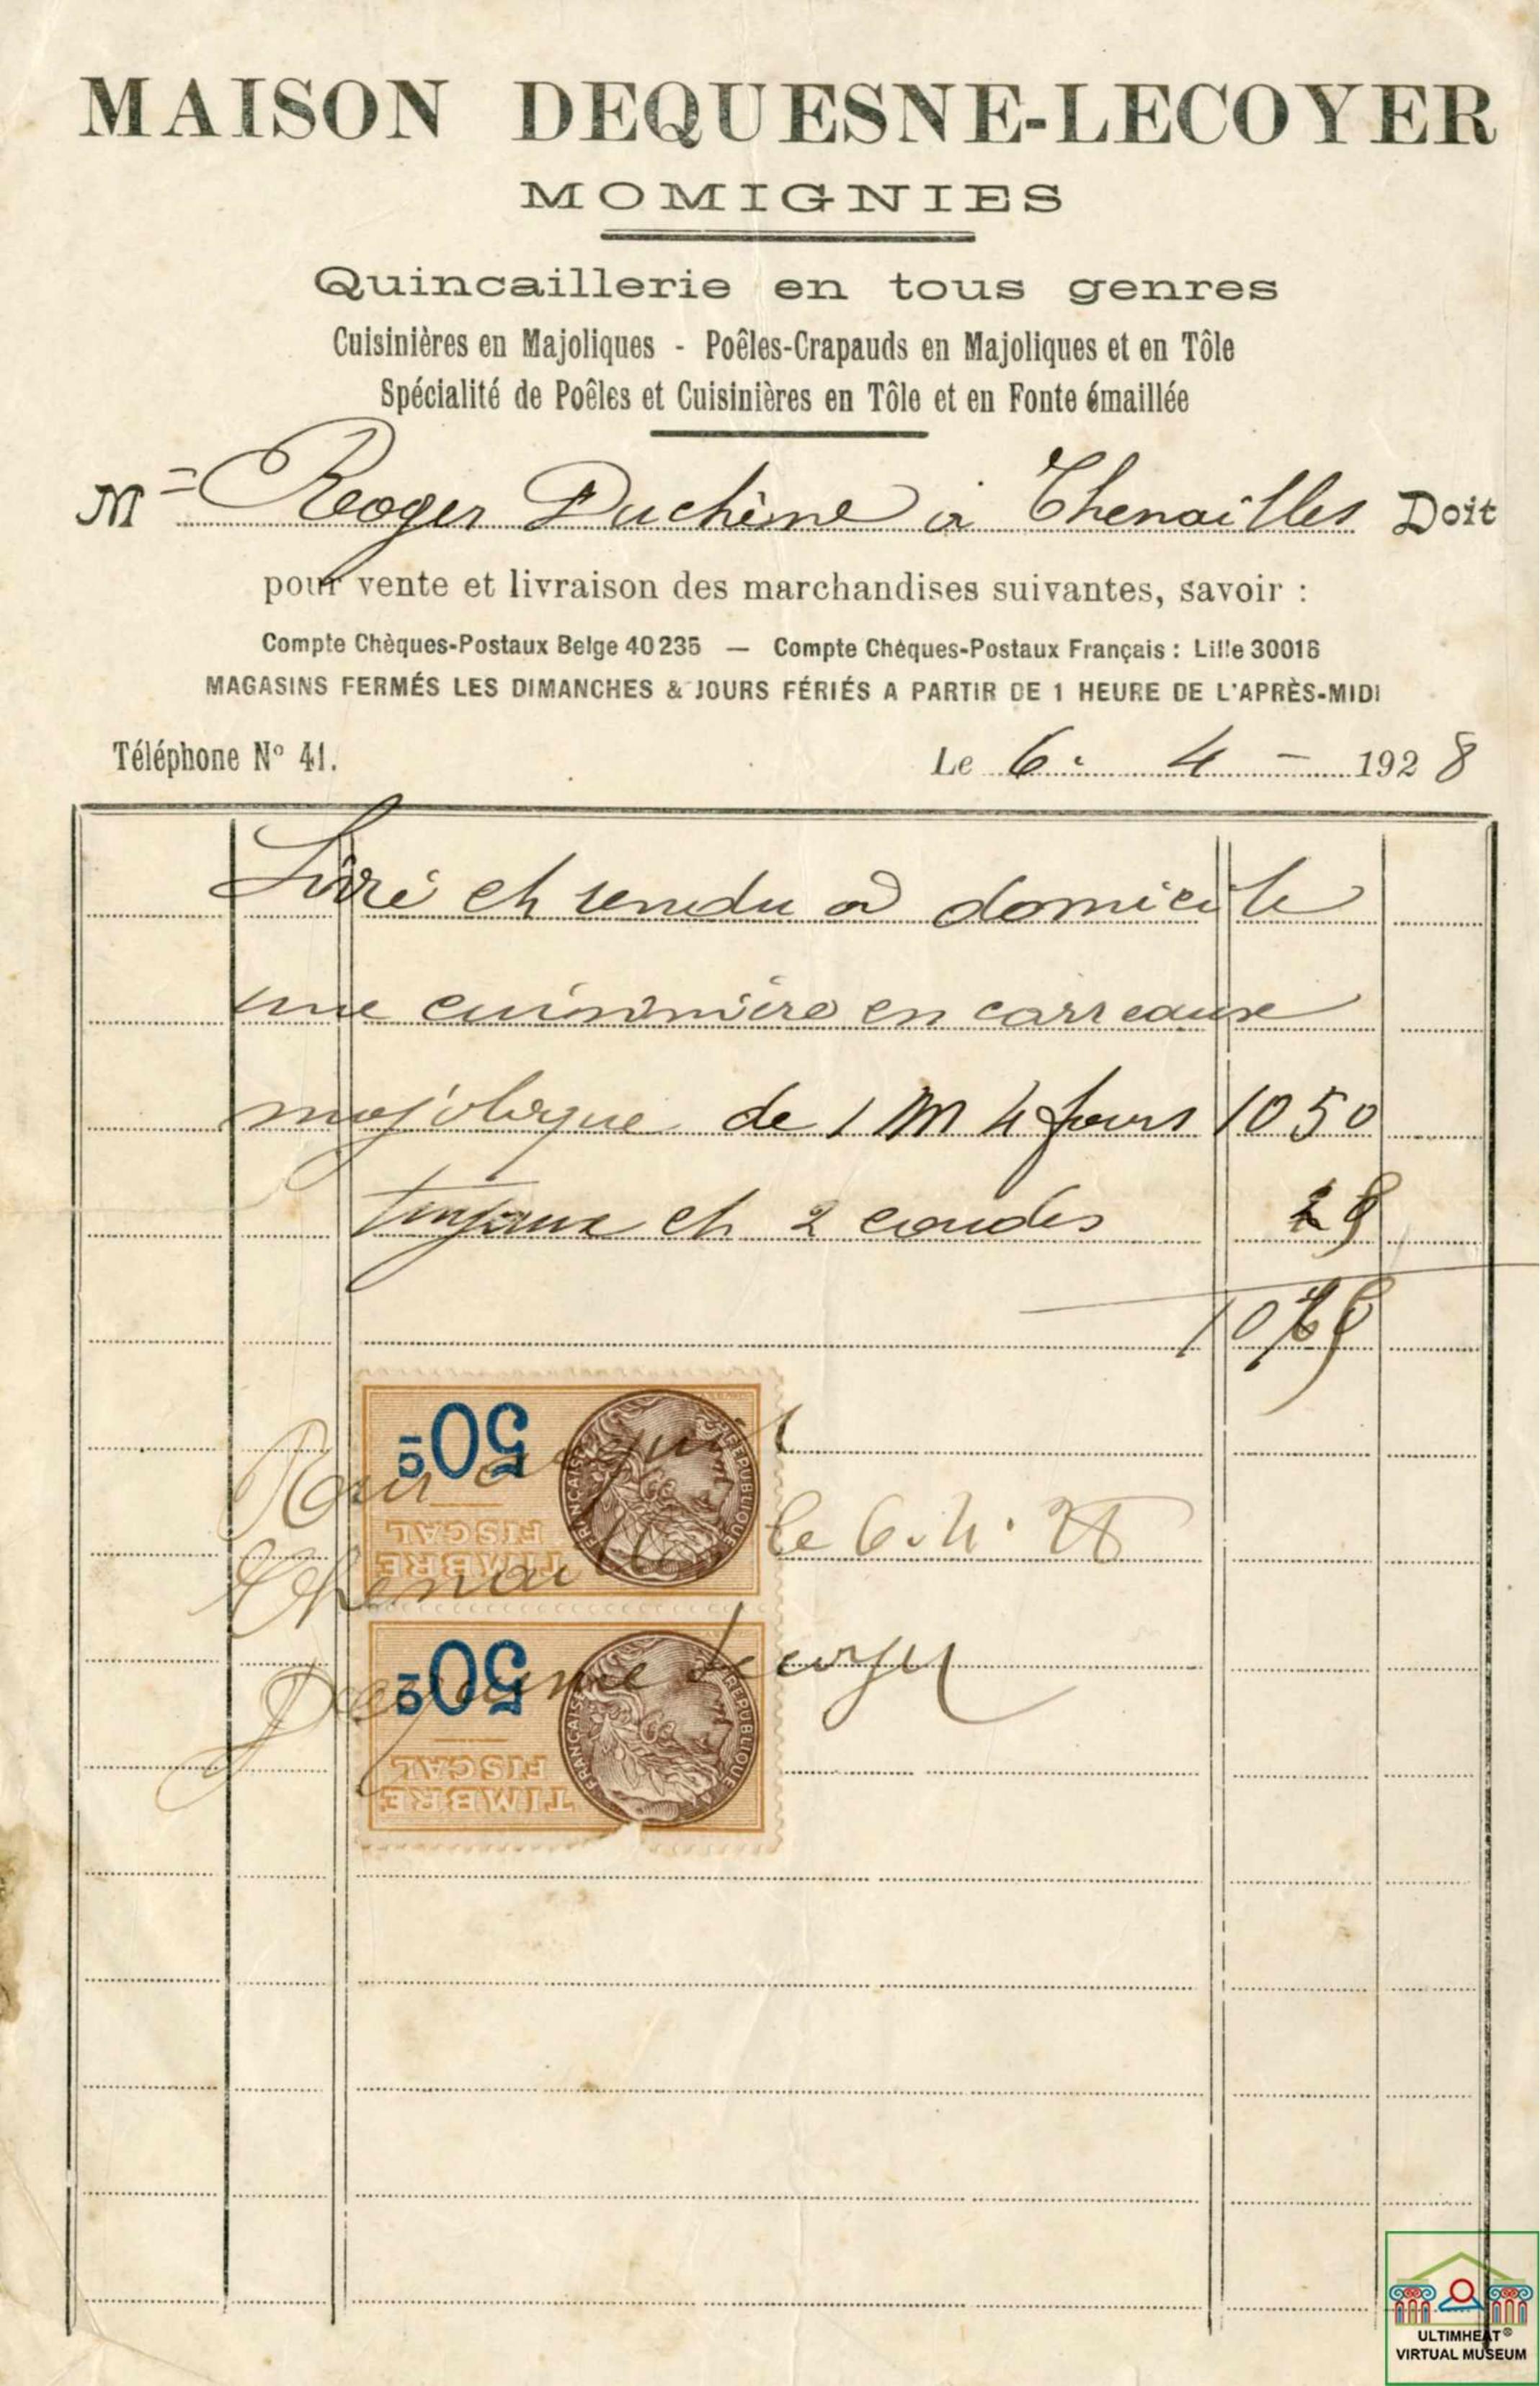 MAISON DEQUESNE-LECOYER
MOMIGNIES
Quincaillerie en tous genres
Cuisinières en Majoliques - Poêles-Crapauds en Majoliques et en Tôle
Spécialité de Poêles et Cuisinières en Tôle et en Fonte émaillée
M= Roger Duchène à Thenailles Doit
pour vente et livraison des marchandises suivantes, savoir :
Compte Chèques-Postaux Belge 40235 — Compte Chèques-Postaux Français : Lille 30018
MAGASINS FERMÉS LES DIMANCHES & JOURS FÉRIÉS A PARTIR DE 1 HEURE DE L'APRÈS-MIDI
Téléphone N° 41.
Le 6. 4 - 1928
Livré et rendu à domicile
une cuisinière en carreaux
majolique de 1 m 4 fours 1050
tuyaux et 2 coudes
50c
Pour acquit
FISCAL
TIMBRE
RÉPUBLIQUE FRANÇAISE
Thenailles le 6.4.28
50c
Dequesne Lecoyer
FISCAL
TIMBRE
RÉPUBLIQUE FRANÇAISE
ULTIMHEAT®
VIRTUAL MUSEUM